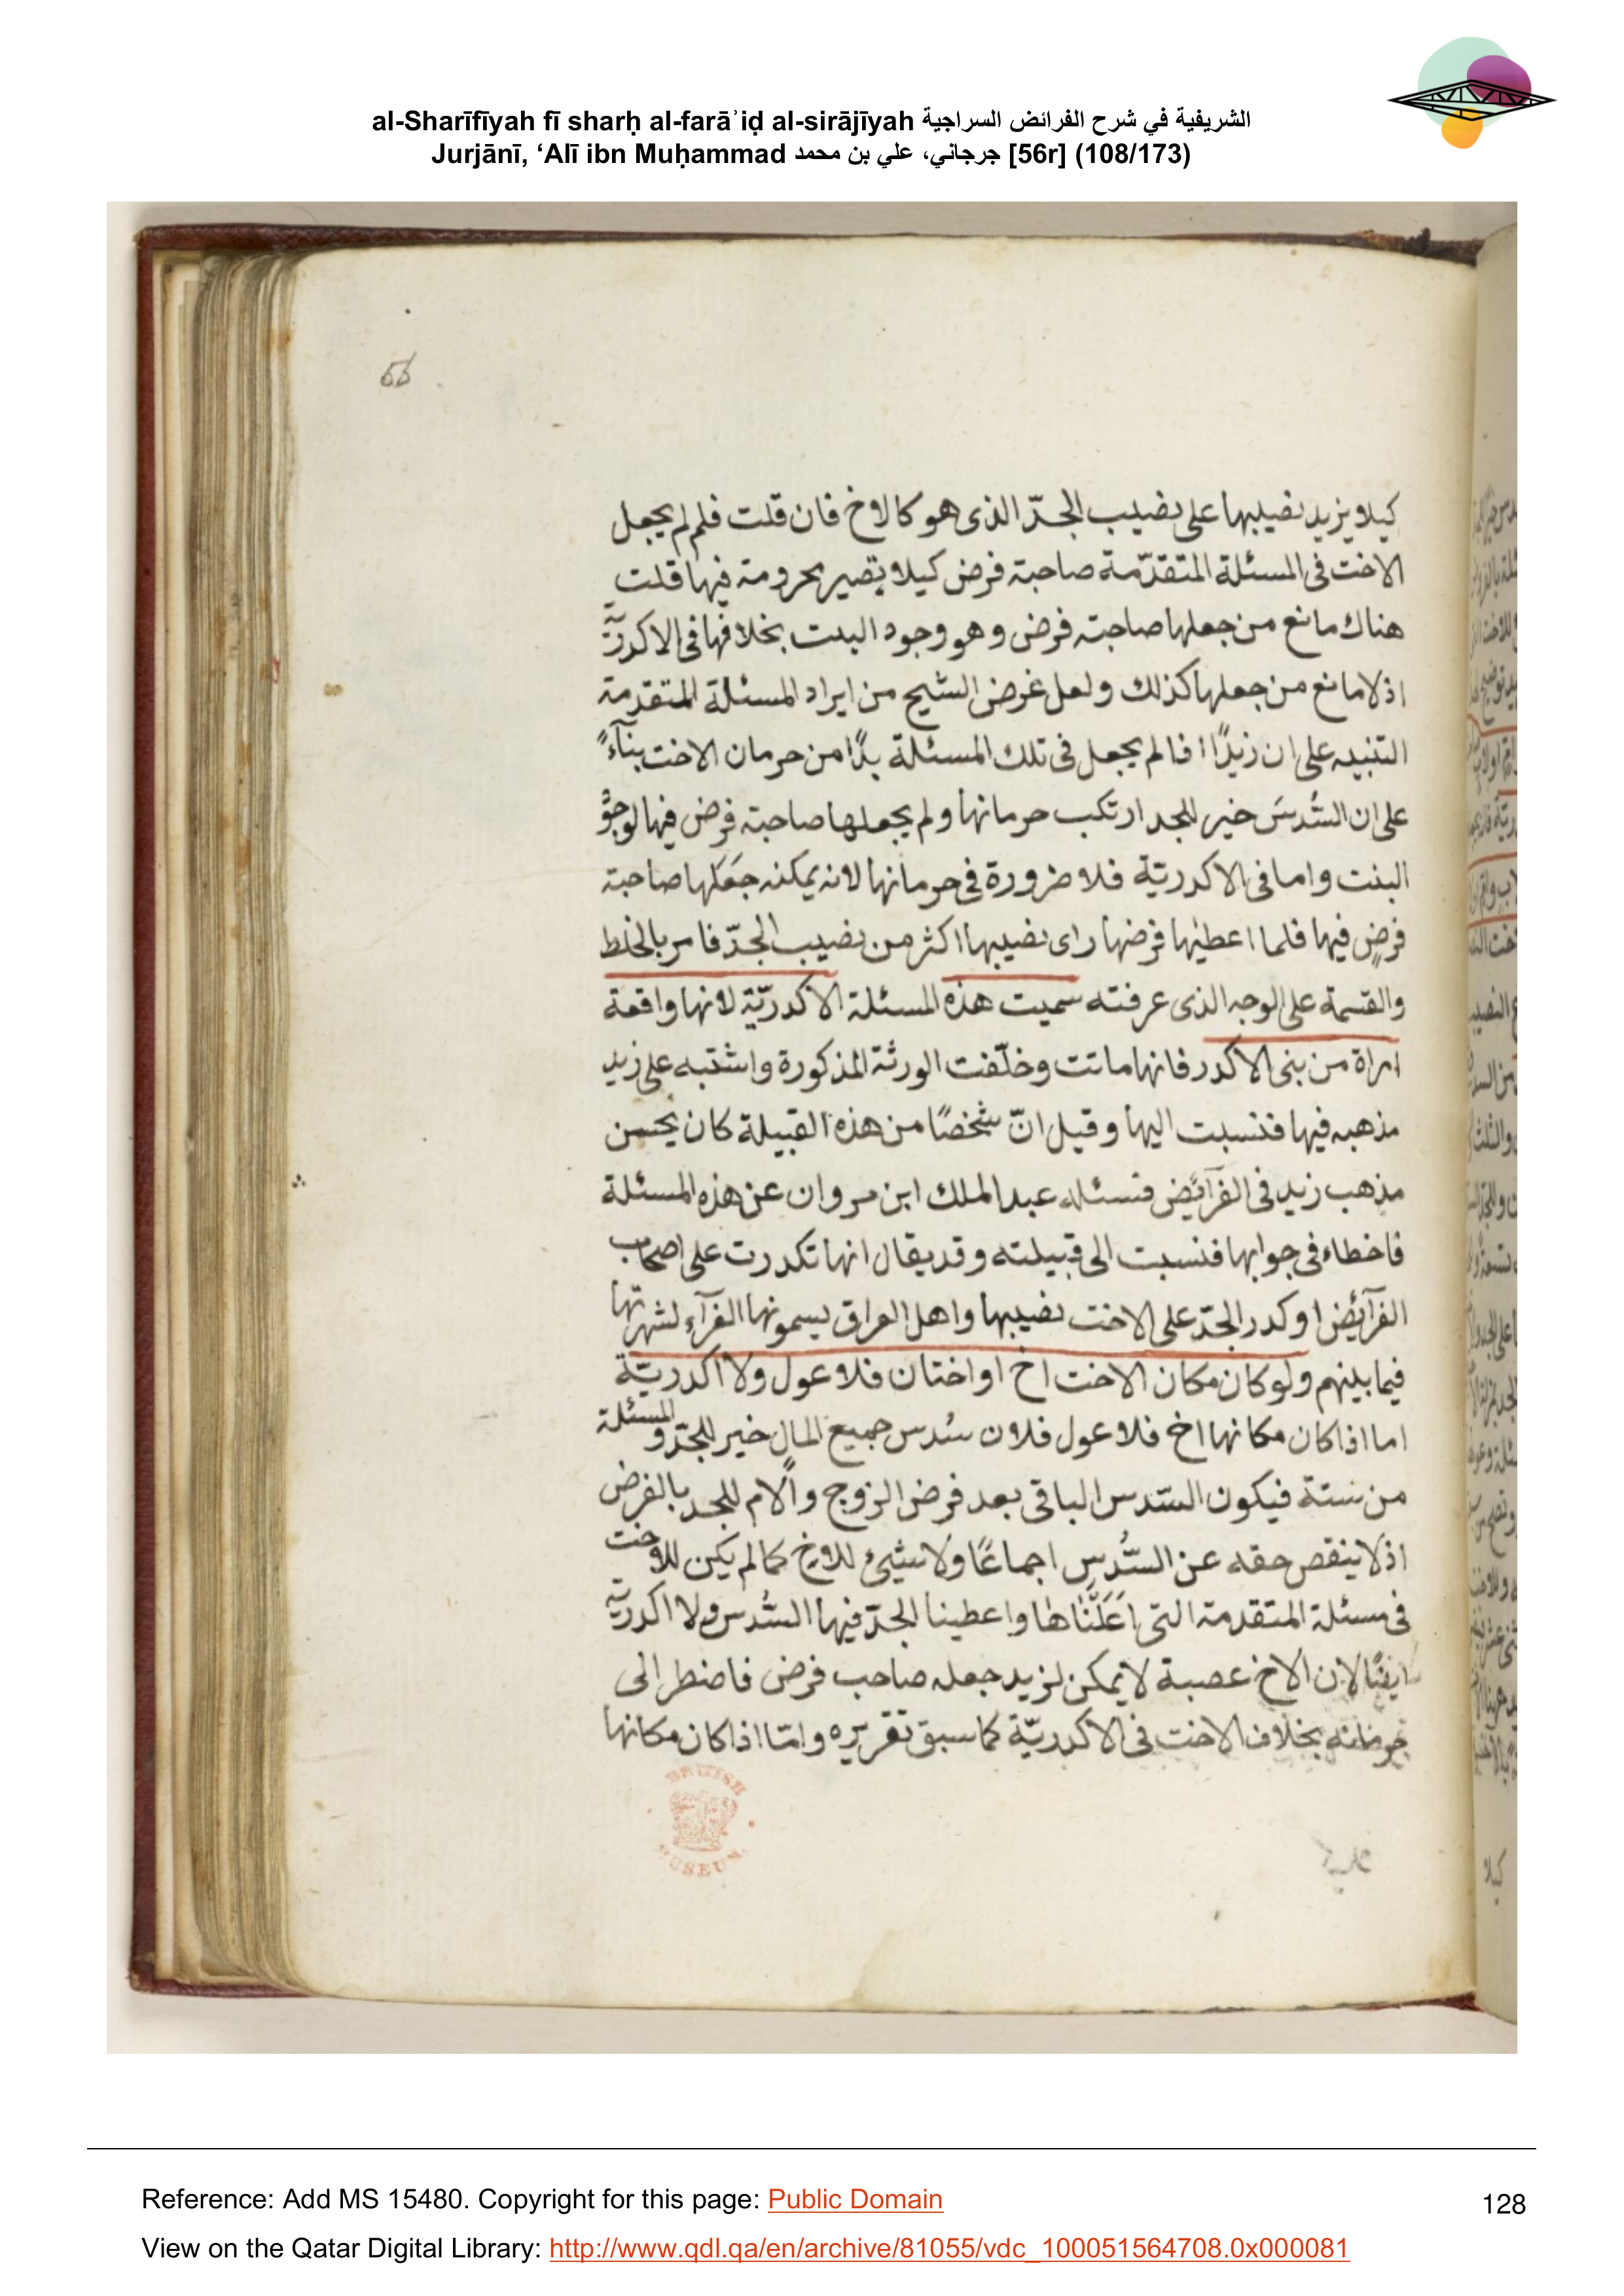 al-Sharīfīyah fī sharḥ al-farāʾiḍ al-sirājīyah الشريفية في شرح الفرائض السراجية
Jurjānī, ‘Alī ibn Muḥammad جرجاني، علي بن محمد [56r] (108/173)
56
كيلا يزيد نصيبها على نصيب الجدّ الذى هو كالاخ فان قلت فلم لم يجعل
الاخت فى المسئلة المتقدّمة صاحبة فرض كيلا تصير محرومة فيها قلت
هناك مانع من جعلها صاحبة فرض وهو وجود البنت بخلافها فى الاكدريّة
اذ لا مانع من جعلها كذلك ولعل غرض الشيخ من ايراد المسئلة المتقدمة
التنبيه على ان زيدًا لم يجعل فى تلك المسئلة بدًّا من حرمان الاخت بنآءً
على ان السُّدسَ خير للجد ارتكب حرمانها ولم يجعلها صاحبة فرض فيها لوجود
البنت واما فى الاكدريّة فلا ضرورة فى حرمانها لانه يمكنه جَعَلها صاحبة
فرضٍ فيها فلما اعطيها فرضها راى نصيبها اكثر من نصيب الجدّ فامر بالخلط
والقسمة على الوجه الذى عرفته سميت هذه المسئلة الاكدريّة لانها واقعة
امراة من بنى الاكدر فانها ماتت وخلّفت الورثة المذكورة واشتبه على زيد
مذهبه فيها فنسبت اليها وقيل انّ شخصًا من هذه القبيلة كان يحسن
مذهب زيد فى الفرآئض فسئله عبد الملك ابن مروان عن هذه المسئلة
فاخطاء فى جوابها فنسبت الى قبيلته وقد يقال انها تكدرت على اصحاب
الفرآئض او كدر الجدّ على الاخت نصيبها واهل العراق يسمونها الغرآء لشهرتها
فيما بينهم ولو كان مكان الاخت اخ او اختان فلا عول ولا اكدريّة
اما اذا كان مكانها اخ فلا عول فلان سُدس جميع المال خير للجدّ والمسئلة
من ستة فيكون السّدس الباقى بعد فرض الزوج والام للجد بالفرض
اذ لا ينقص حقه عن السُّدس اجماعًا ولا شيئ للاخ كما لم يكن للاخت
فى مسئلة المتقدمة التى اعلناها واعطينا الجدّ فيها السُّدس ولا اكدريّة
ايضًا لان الاخ عصبة لا يمكن لزيد جعله صاحب فرض فاضطر الى
حرمانه بخلاف الاخت فى الاكدريّة كما سبق تقريره وامّا اذا كان مكانها
BRITISH
MUSEUM
كيلا
Reference: Add MS 15480. Copyright for this page: Public Domain
128
View on the Qatar Digital Library: http://www.qdl.qa/en/archive/81055/vdc_100051564708.0x000081